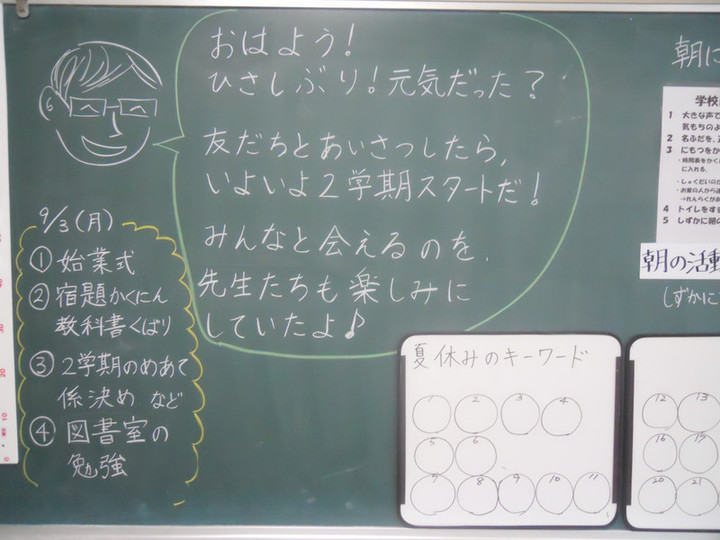 おはよう!
ひさしぶり!元気だった?
友だちとあいさつしたら,
いよいよ2学期スタートだ!
みんなと会えるのを,
先生たちも楽しみに
していたよ♪
9/3(月)
① 始業式
② 宿題かくにん
教科書くばり
③ 2学期のめあて
係決め など
④ 図書室の
勉強
夏休みのキーワード
1 2 3 4
5 6
7 8 9 10 11
12 13
16 15
20 21
朝に
学校
1 大きな声で
気もちのよ
2 名ふだを、
3 にもつをか
・時間表をかく
に入れる.
・しゅくだいのた
・お家の人から連
→れんらくがあ
4 トイレをすま
5 しずかに朝の
朝の活動
(しずかに